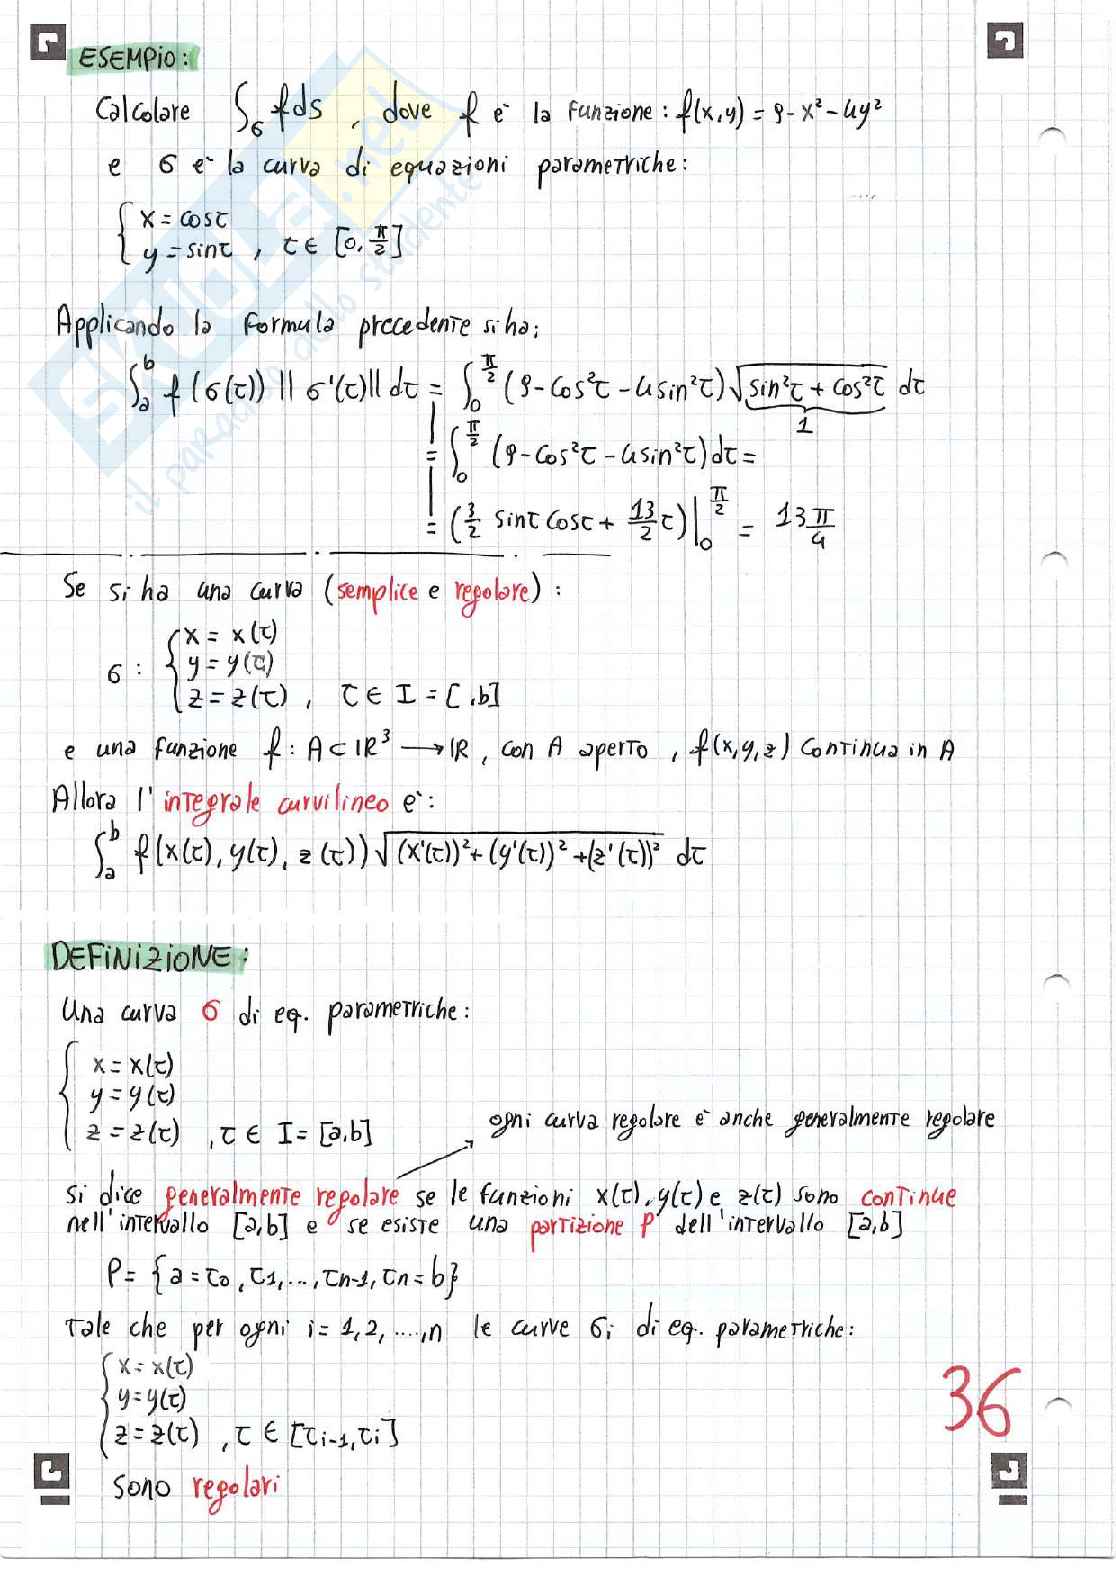 ESEMPIO:
Calcolare ∫σ f ds , dove f è la funzione: f(x,y) = 9 - x² - 4y²
e σ è la curva di equazioni parametriche:
x = cos τ
y = sin τ , τ ∈ [0, π/2]
Applicando la formula precedente si ha;
∫ₐᵇ f(σ(τ)) ||σ'(τ)|| dτ = ∫₀^{π/2} (9 - cos²τ - 4sin²τ) √(sin²τ + cos²τ) dτ
1
= ∫₀^{π/2} (9 - cos²τ - 4sin²τ) dτ =
= (3/2 sin τ cos τ + 13/2 τ) |₀^{π/2} = 13 π/4
Se si ha una curva (semplice e regolare):
σ : { x = x(τ)
y = y(τ)
z = z(τ) , τ ∈ I = [ ,b]
e una funzione f : A ⊂ ℝ³ → ℝ , con A aperto , f(x,y,z) continua in A
Allora l'integrale curvilineo è:
∫ₐᵇ f(x(τ), y(τ), z(τ)) √((x'(τ))² + (y'(τ))² + (z'(τ))²) dτ
DEFINIZIONE:
Una curva σ di eq. parametriche:
x = x(τ)
y = y(τ)
z = z(τ) , τ ∈ I = [a,b]
ogni curva regolare è anche generalmente regolare
si dice generalmente regolare se le funzioni x(τ), y(τ) e z(τ) sono continue
nell'intervallo [a,b] e se esiste una partizione P dell'intervallo [a,b]
P = {a = τ₀, τ₁, ..., τn-1, τn = b}
Tale che per ogni i = 1,2, ...,n le curve σi di eq. parametriche:
x = x(τ)
y = y(τ)
z = z(τ) , τ ∈ [τi-1, τi]
sono regolari
36
SKUOLA.net
il paradiso dello studente